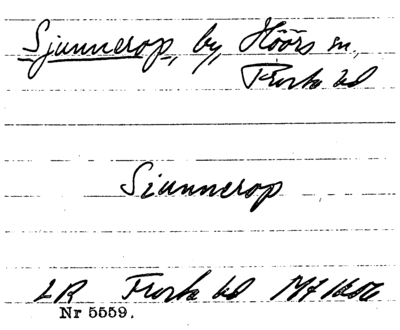 Sjunnerop, by, Höörs sn,
Frosta hd
Siunnerop
LR Frosta hd Mf 1606
Nr 5559.